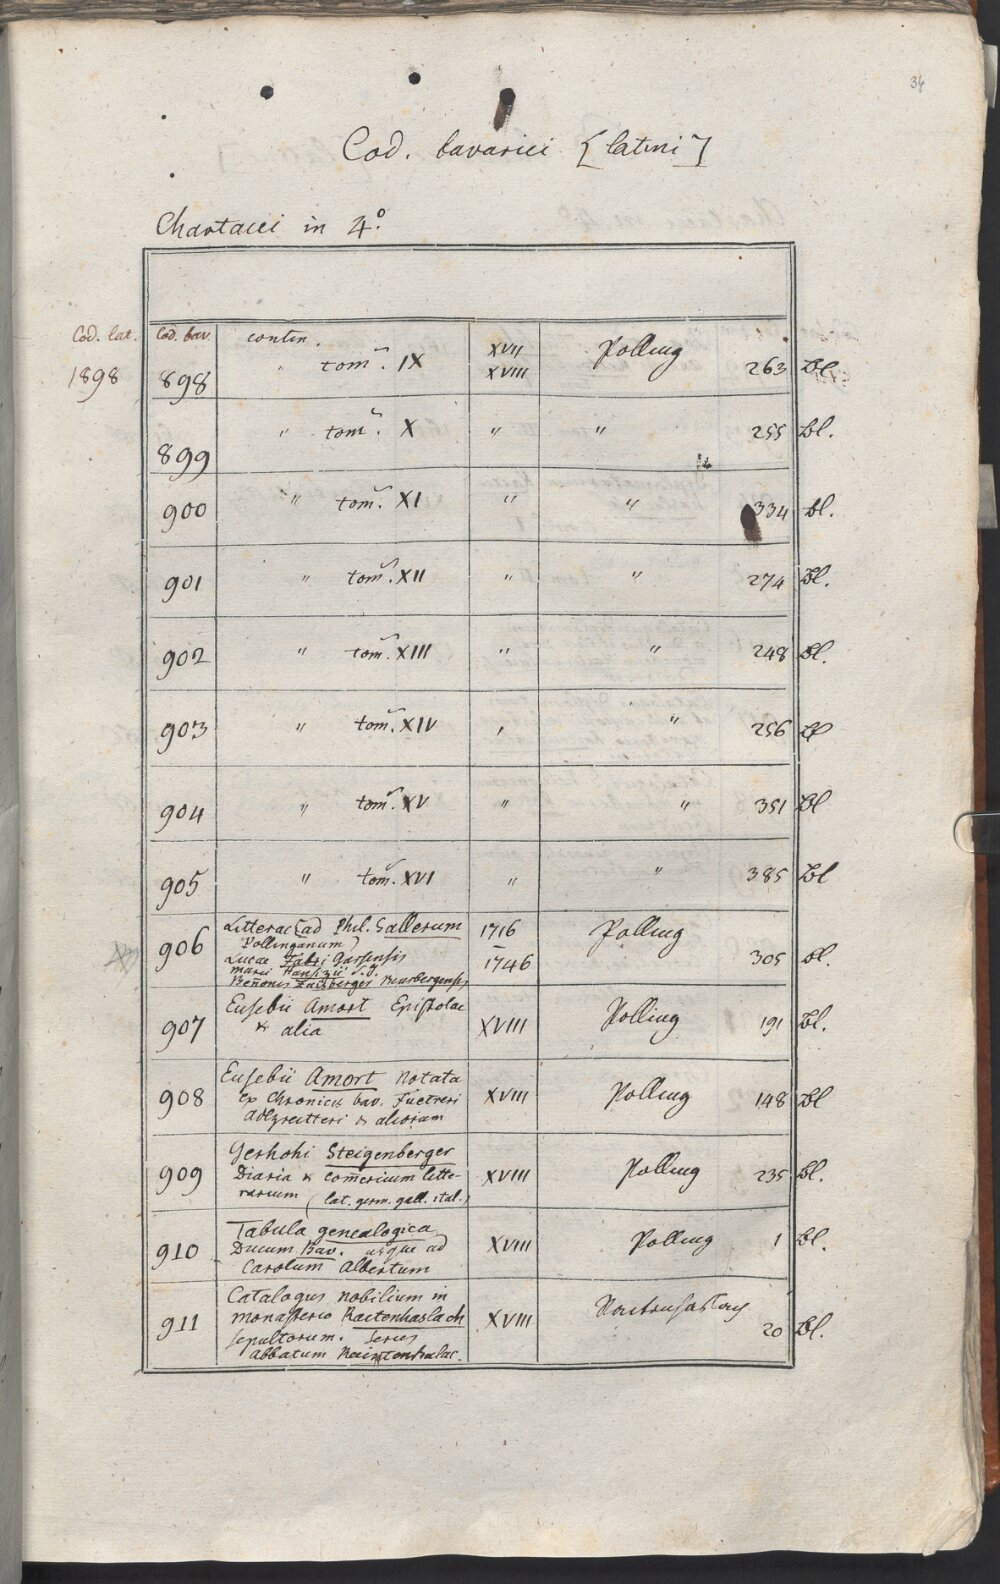 34
Cod. bavarici [latini]
Chartacei in 4.°
Cod. lat. Cod. bav. contin.
1898 898 " tom. IX XVII XVIII Polling 263 Bl
899 " tom. X " " 255 Bl.
900 " tom. XI " " 334 Bl.
901 " tom. XII " " 274 Bl.
902 " tom. XIII " " 248 Bl.
903 " tom. XIV " " 256 Bl
904 " tom. XV " " 351 Bl
905 " tom. XVI " " 385 Bl
906 Litterae (ad Phil. Gallerum 1716 Polling
Pollinganum) –
Lucae Fabri Garsensis 1746 305 Bl.
Marci Hansizii S.J.
Benonis Beurbergensis
907 Eusebii Amort Epistolae XVIII Polling 191 Bl.
& alia
908 Eusebii Amort Notata XVIII Polling 148 Bl
ex Chronicis bav. Fuetreri
Adlzreitteri & aliorum
909 Gerhohi Steigenberger XVIII Polling 235 Bl.
Diaria & com̄ercium litte-
rarium (lat. germ. gall. ital.)
910 Tabula genealogica XVIII Polling 1 Bl.
Ducum Bav. usque ad
Carolum Albertum
911 Catalogus nobilium in XVIII
monasterio Raitenhaslach 20 Bl.
sepultorum. Series
abbatum